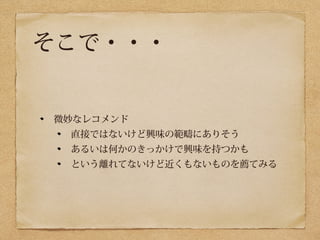 そこで・・・
微妙なレコメンド
直接ではないけど興味の範疇にありそう
あるいは何かのきっかけで興味を持つかも
という離れてないけど近くもないものを薦めてみる